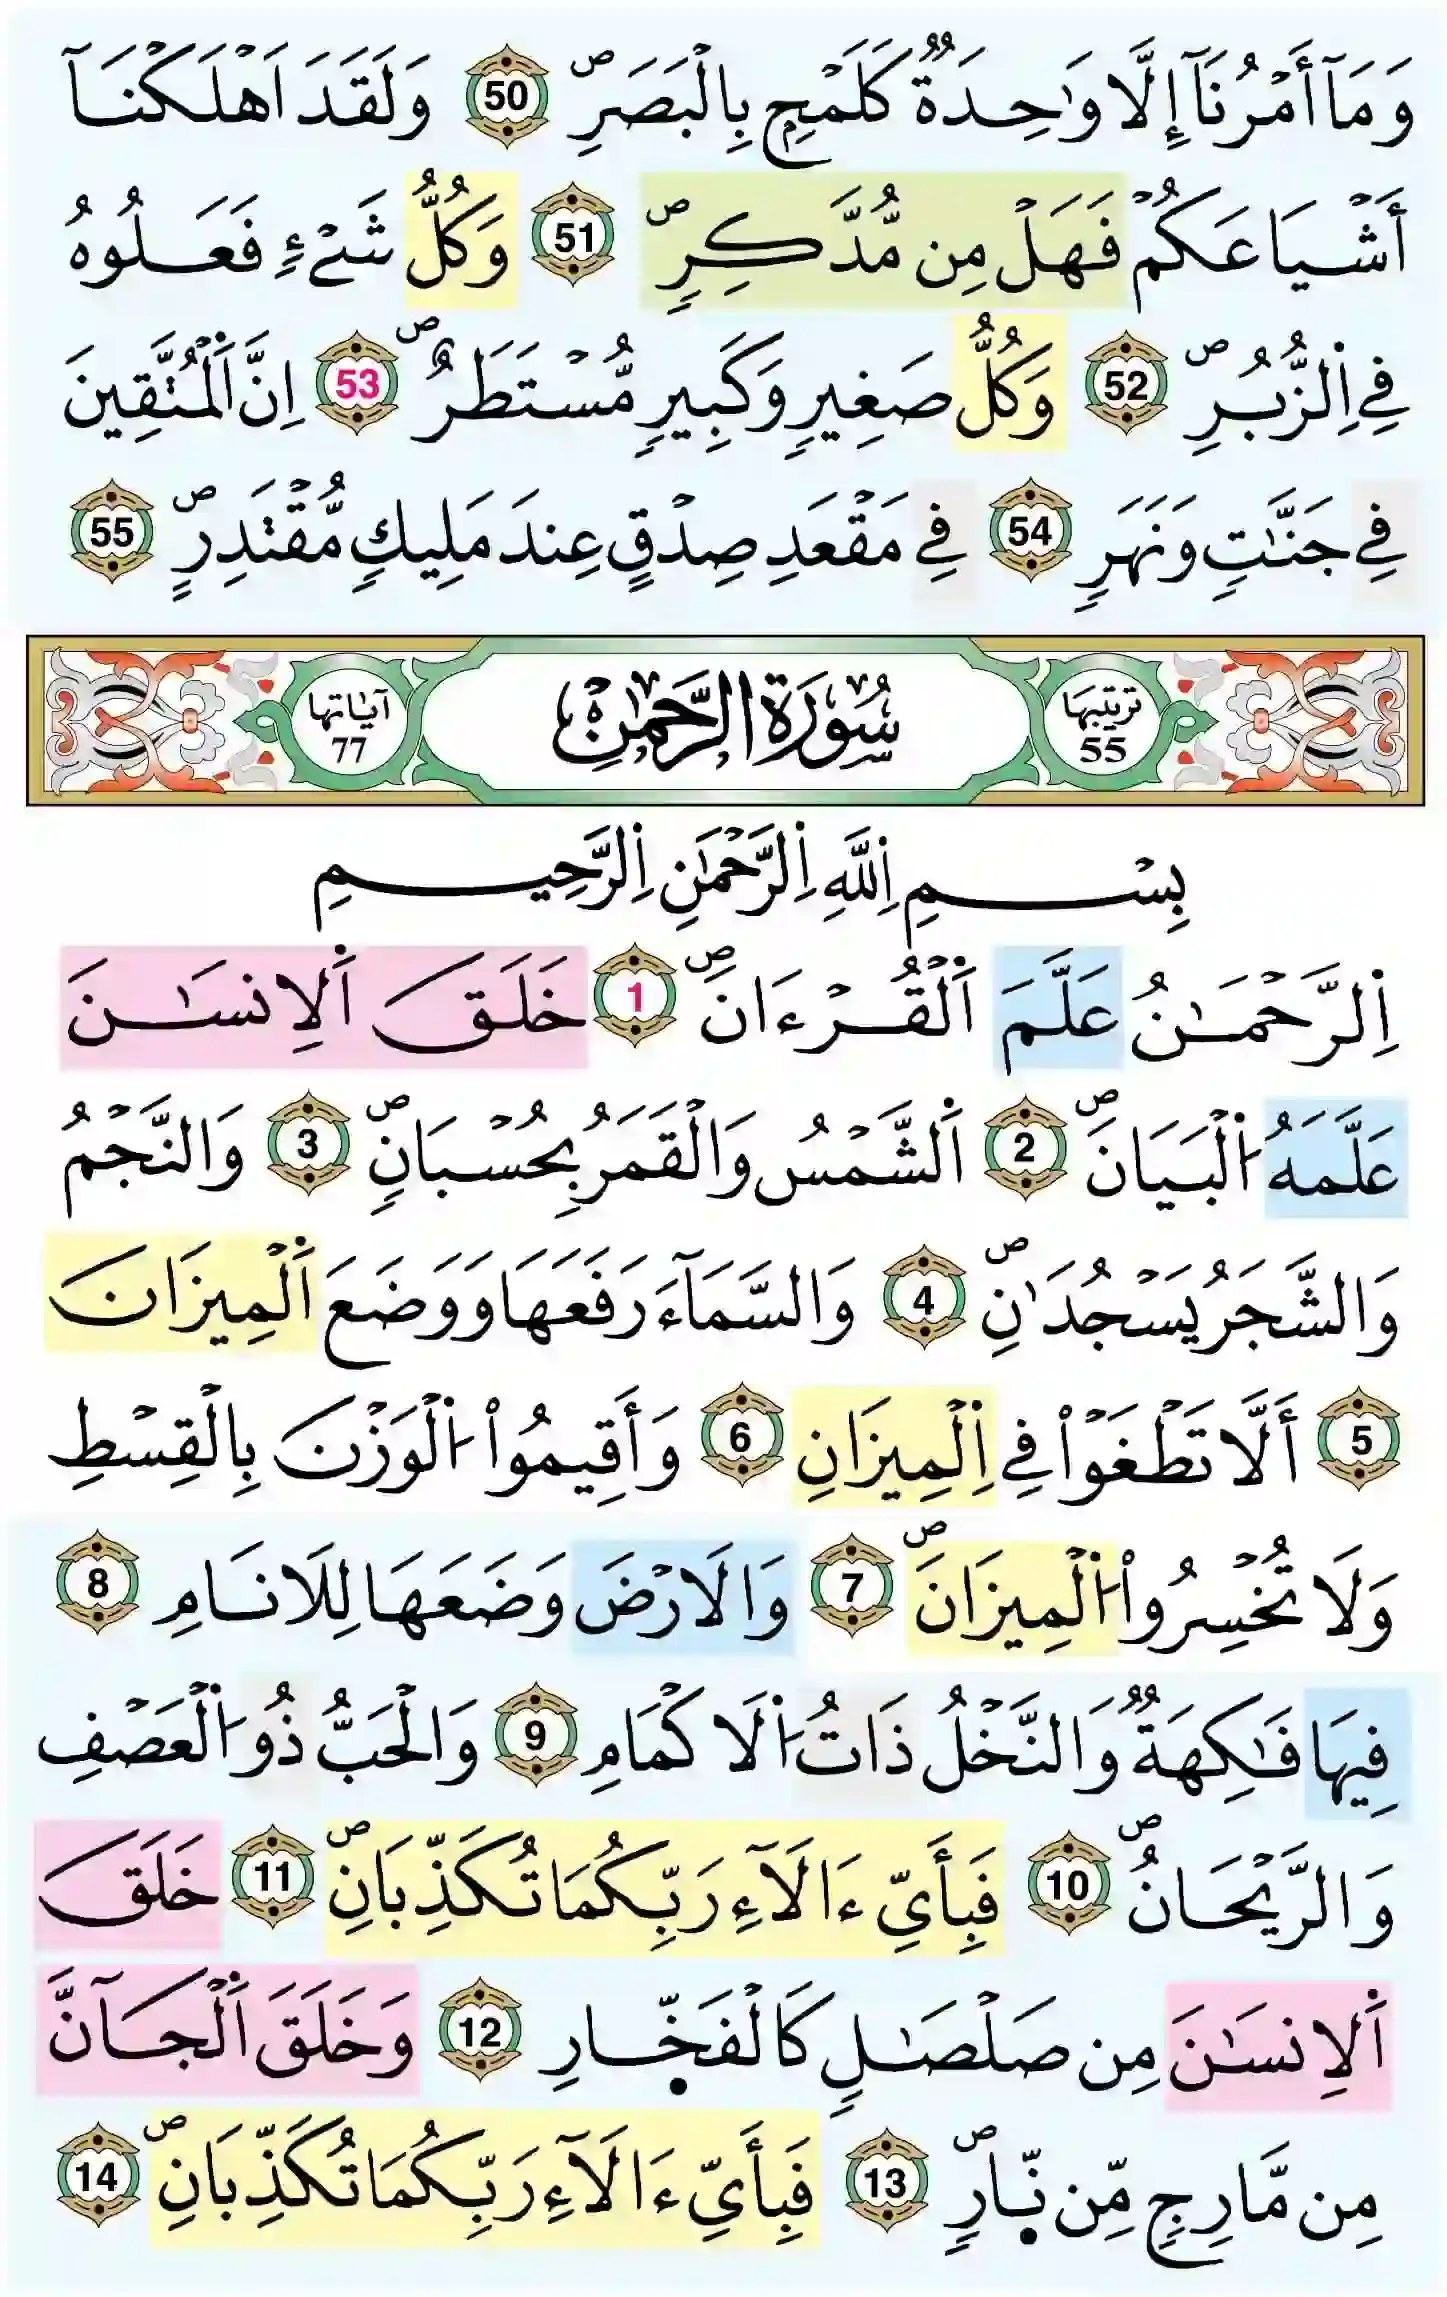 وَمَآ أَمْرُنَآ إِلَّا وَٰحِدَةٌ كَلَمْحٍۭ بِالْبَصَرِۖ 50 وَلَقَدَ اَهْلَكْنَآ
أَشْيَاعَكُمْ فَهَلْ مِن مُّدَّكِرٍۖ 51 وَكُلُّ شَےْءٍ فَعَلُوهُ
فِے اِ۬لزُّبُرِۖ 52 وَكُلُّ صَغِيرٍ وَكَبِيرٍ مُّسْتَطَرٌۖ 53 اِنَّ اَ۬لْمُتَّقِينَ
فِے جَنَّٰتٍ وَنَهَرٍ 54 فِے مَقْعَدِ صِدْقٍ عِندَ مَلِيكٍ مُّقْتَدِرٍۖ 55
ترتيبها 55 سُورَةُ الرَّحْمَٰنِ آياتها 77
بِسْمِ اِ۬للَّهِ اِ۬لرَّحْمَٰنِ اِ۬لرَّحِيمِ
اِ۬لرَّحْمَٰنُ عَلَّمَ اَ۬لْقُرْءَانَۖ 1 خَلَقَ اَ۬لِانسَٰنَ
عَلَّمَهُ اُ۬لْبَيَانَۖ 2 اَ۬لشَّمْسُ وَالْقَمَرُ بِحُسْبَانٍۖ 3 وَالنَّجْمُ
وَالشَّجَرُ يَسْجُدَٰنِۖ 4 وَالسَّمَآءَ رَفَعَهَا وَوَضَعَ اَ۬لْمِيزَانَ
5 أَلَّا تَطْغَوْاْ فِے اِ۬لْمِيزَانِ 6 وَأَقِيمُواْ اُ۬لْوَزْنَ بِالْقِسْطِ
وَلَا تُخْسِرُواْ اُ۬لْمِيزَانَۖ 7 وَالَارْضَ وَضَعَهَا لِلَانَامِ 8
فِيهَا فَٰكِهَةٌ وَالنَّخْلُ ذَاتُ اُ۬لَاكْمَامِ 9 وَالْحَبُّ ذُو اُ۬لْعَصْفِ
وَالرَّيْحَانُۖ 10 فَبِأَيِّ ءَالَآءِ رَبِّكُمَا تُكَذِّبَانِۖ 11 خَلَقَ
اَ۬لِانسَٰنَ مِن صَلْصَٰلٍ كَالْفَخّ۪ارِ 12 وَخَلَقَ اَ۬لْجَآنَّ
مِن مَّارِجٍ مِّن نّ۪ارٍۖ 13 فَبِأَيِّ ءَالَآءِ رَبِّكُمَا تُكَذِّبَانِۖ 14